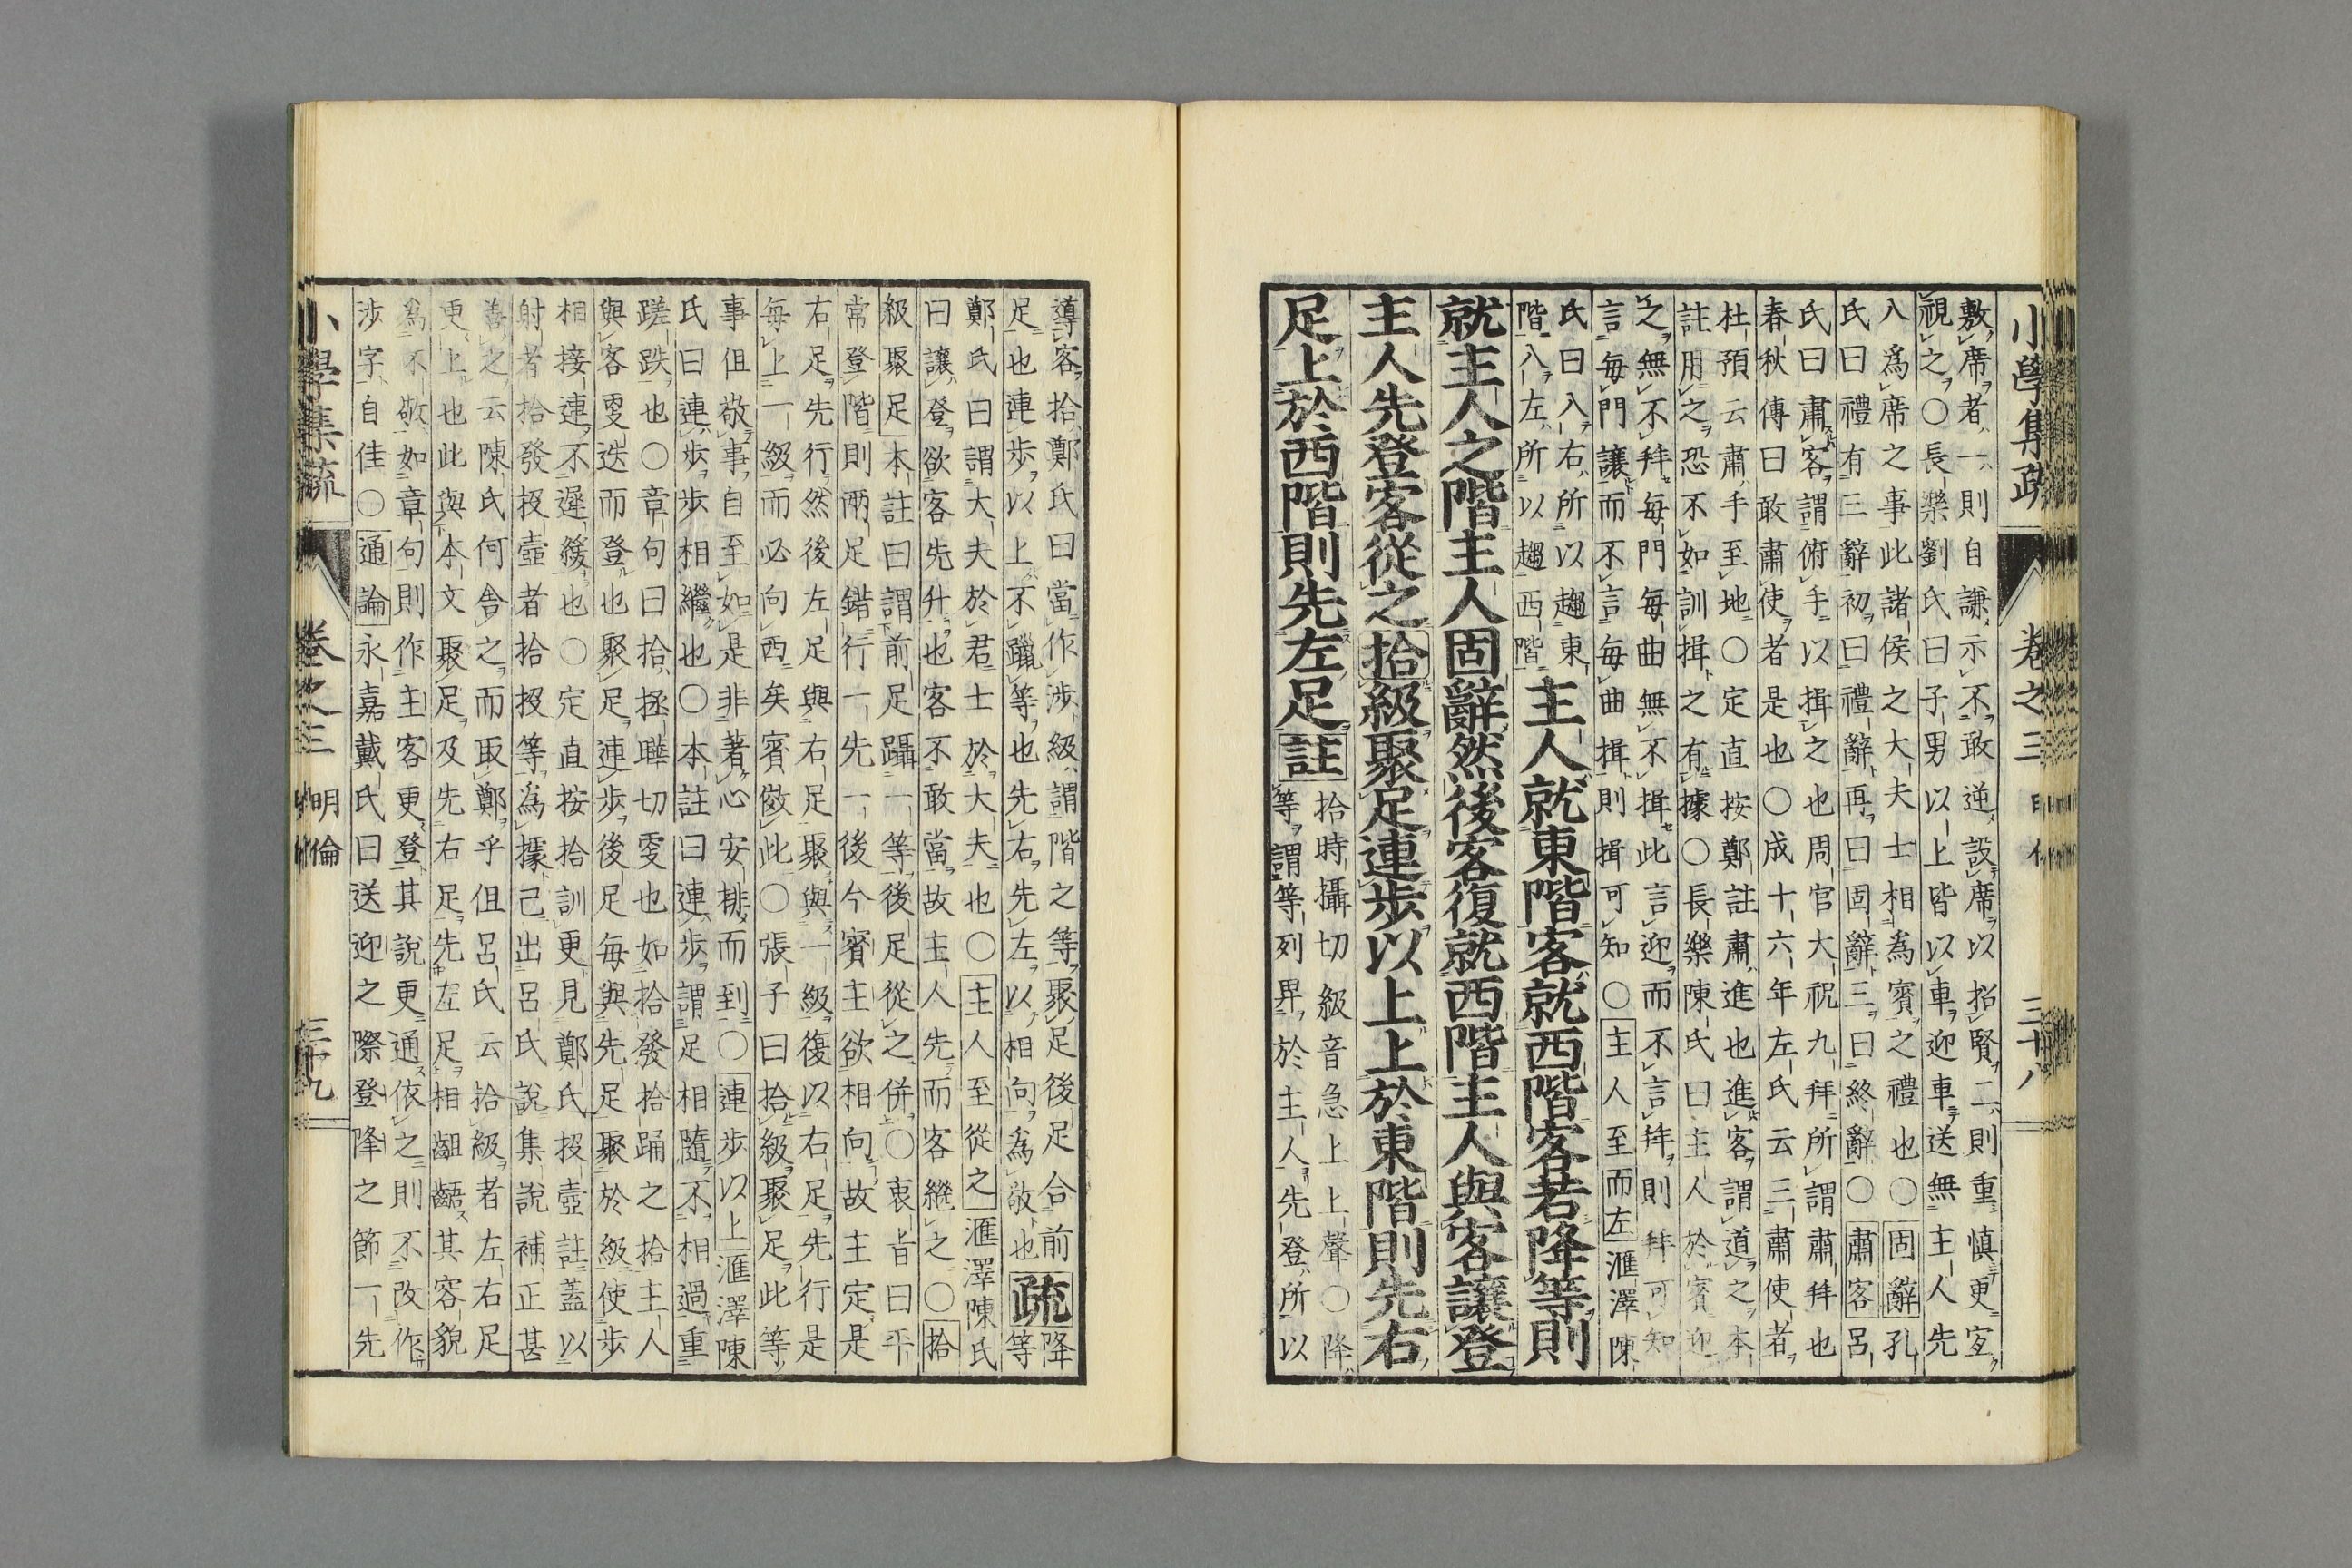 小學集疏 卷之三 三十八
敷席者一則自謙示不敢逆設席以招賢二則重慎更宜
視之○長樂劉氏曰子男以上皆以車迎車送無主人先
入為席之事此諸侯之大夫士相為賓之禮也○固辭孔
氏曰禮有三辭初曰禮辭再曰固辭三曰終辭○肅客呂
氏曰肅客謂俯手以揖之也周官大祝九拜所謂肅拜也
春秋傳曰敢肅使者是也○成十六年左氏云三肅使者
杜預云肅手至地○定直按鄭註肅進也進客謂道之本
註用之恐不如訓揖之有據○長樂陳氏曰主人於賓迎
之無不拜每門每曲無不揖此言迎而不言拜則拜可知
言每門讓而不言每曲揖則揖可知○主人至而左滙澤陳
氏曰入右所以趨東
階入左所以趨西階
主人就東階客就西階客若降等則
就主人之階主人固辭然後客復就西階主人與客讓登
主人先登客從之拾級聚足連步以上上於東階則先右
足上於西階則先左足註
拾時攝切級音急上上聲○降
等謂等列卑於主人先登所以
導客拾鄭氏曰當作涉級謂階之等聚足後足合前
足也連步以上不躐等也先右先左以相向為敬也
疏
降
等
鄭氏曰謂大夫於君士於大夫也○主人至從之滙澤陳氏
曰讓登欲客先升也客不敢當故主人先而客繼之○拾
級聚足本註曰謂前足躡一等後足從之併○衷旨曰平
常登階則兩足錯行一先一後今賓主欲相向故主定是
右足先行然後左足與右足聚與一級復以右足先行是
每上一級而必向西矣賓倣此○張子曰拾級聚足此等
事但敬事自至如是非著心安排而到○連步以上滙澤陳
氏曰連步步相繼也○本註曰連步謂足相隨不相過重
蹉跌也○章句曰拾拯聮切更也如拾發拾踊之拾主人
與客更迭而登也聚足連步後足每與先足聚於級使步
相接連不遲緩也○定直按拾訓更見鄭氏投壺註蓋以
射者拾發投壺者拾投等為據已出呂氏說集說補正甚
善之云陳氏何舍之而取鄭乎但呂氏云拾級者左右足
更上也此與本文聚足及先右足先左足相齟齬其容貌
為不敬如章句則作主客更登其說更通依之則不改作
涉字自佳○通論永嘉戴氏曰送迎之際登降之節一先
小學集疏 卷之三 明倫 三十九